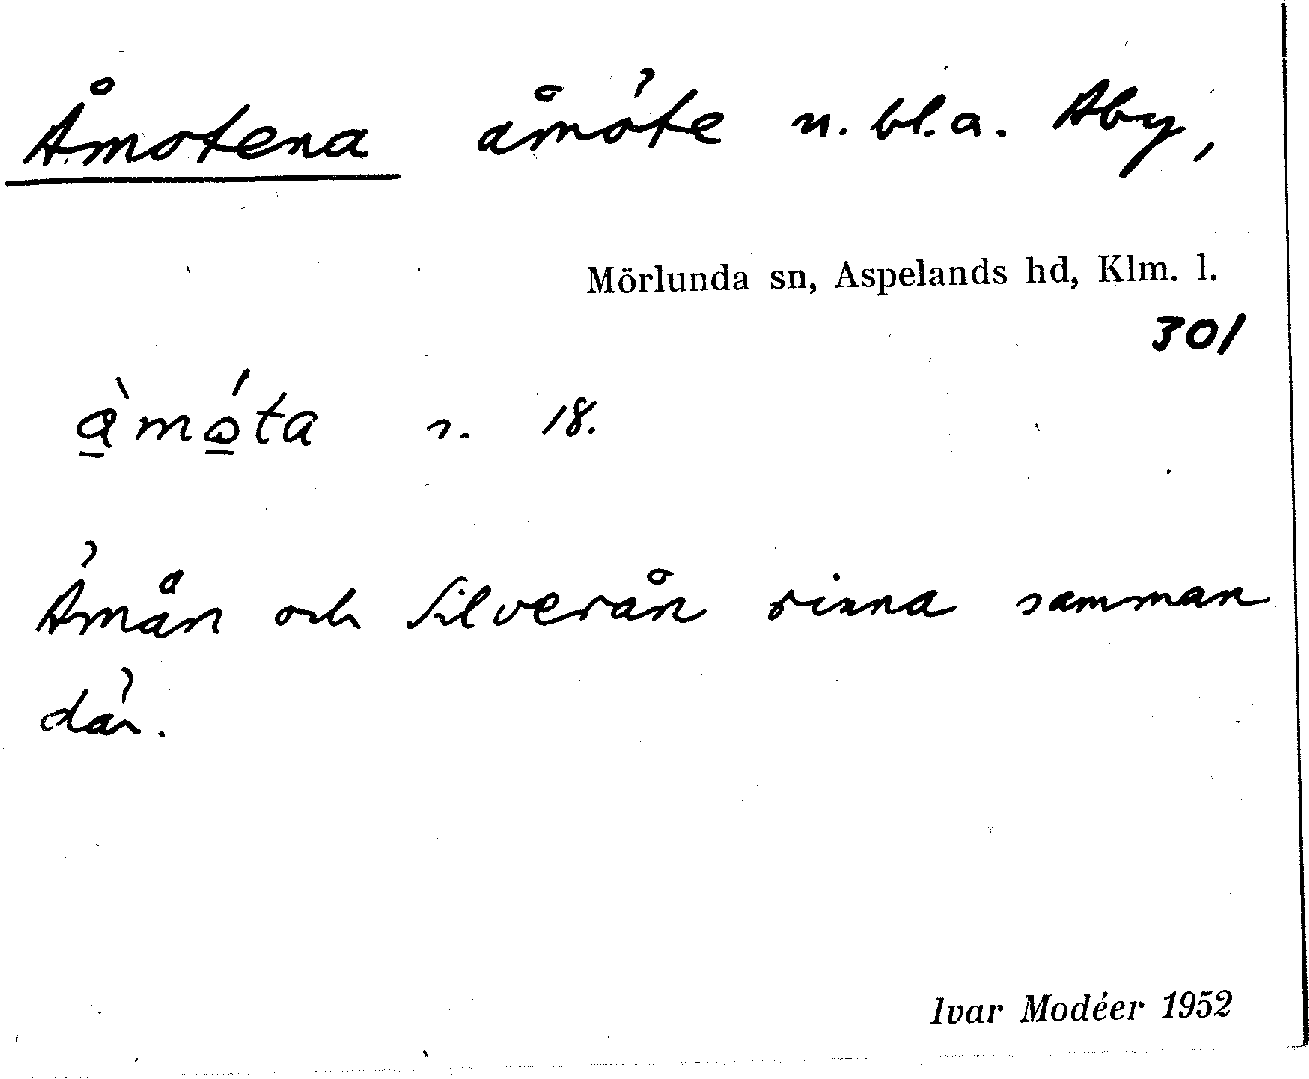 Åmotena åmöte n. bl. a. Åby,
Mörlunda sn, Aspelands hd, Klm. l.
301
a̠̍mo̠̍ta n. 18.
Ämån och Silverån rinna samman
där.
Ivar Modéer 1952